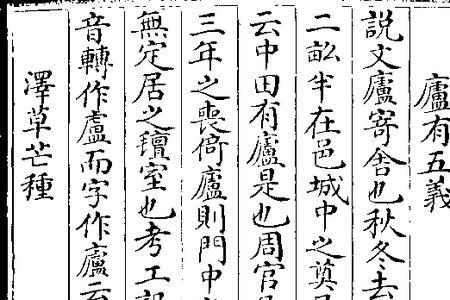 廬有五義
説文廬寄舍也秋冬去
二畝半在邑城中之奠
云中田有廬是也周官
三年之喪倚廬則門中
無定居之氊室也考工記
音轉作盧而字作廬云
澤草芒種